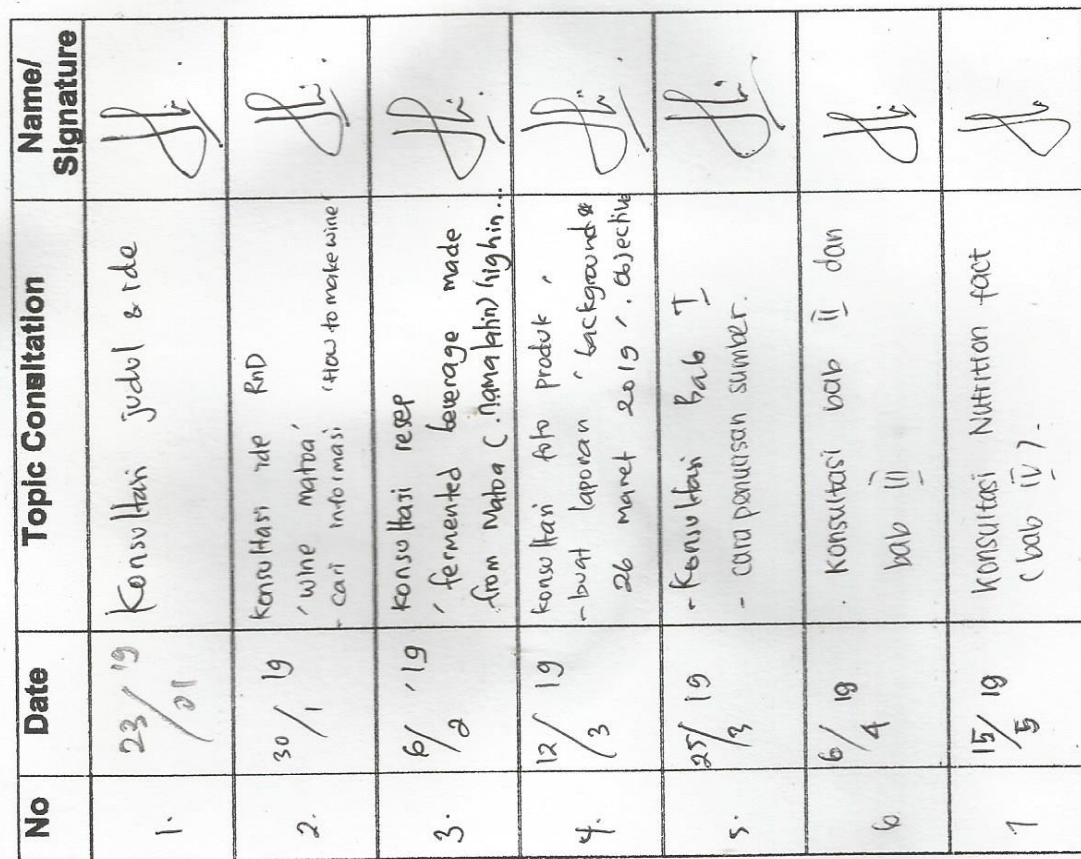 No Date Topic Consltation Name/ Signature
1. 23/01 '19 Konsultasi judul & ide
2. 30/1 19 Konsultasi ide RnD
'wine matoa'
- cari informasi 'How to make wine'
3. 6/2 '19 Konsultasi resep
' fermented beverage made
from Matoa (
4. 12/3 19 konsultasi foto produk,
- buat laporan ' background &
26 maret 2019 objective
5. 25/3 19 - Konsultasi Bab I
- cara penulisan sumber.
6. 6/4 19 . Konsultasi bab II dan
bab III
7 15/5 19 Konsultasi Nutrition fact
(bab IV).